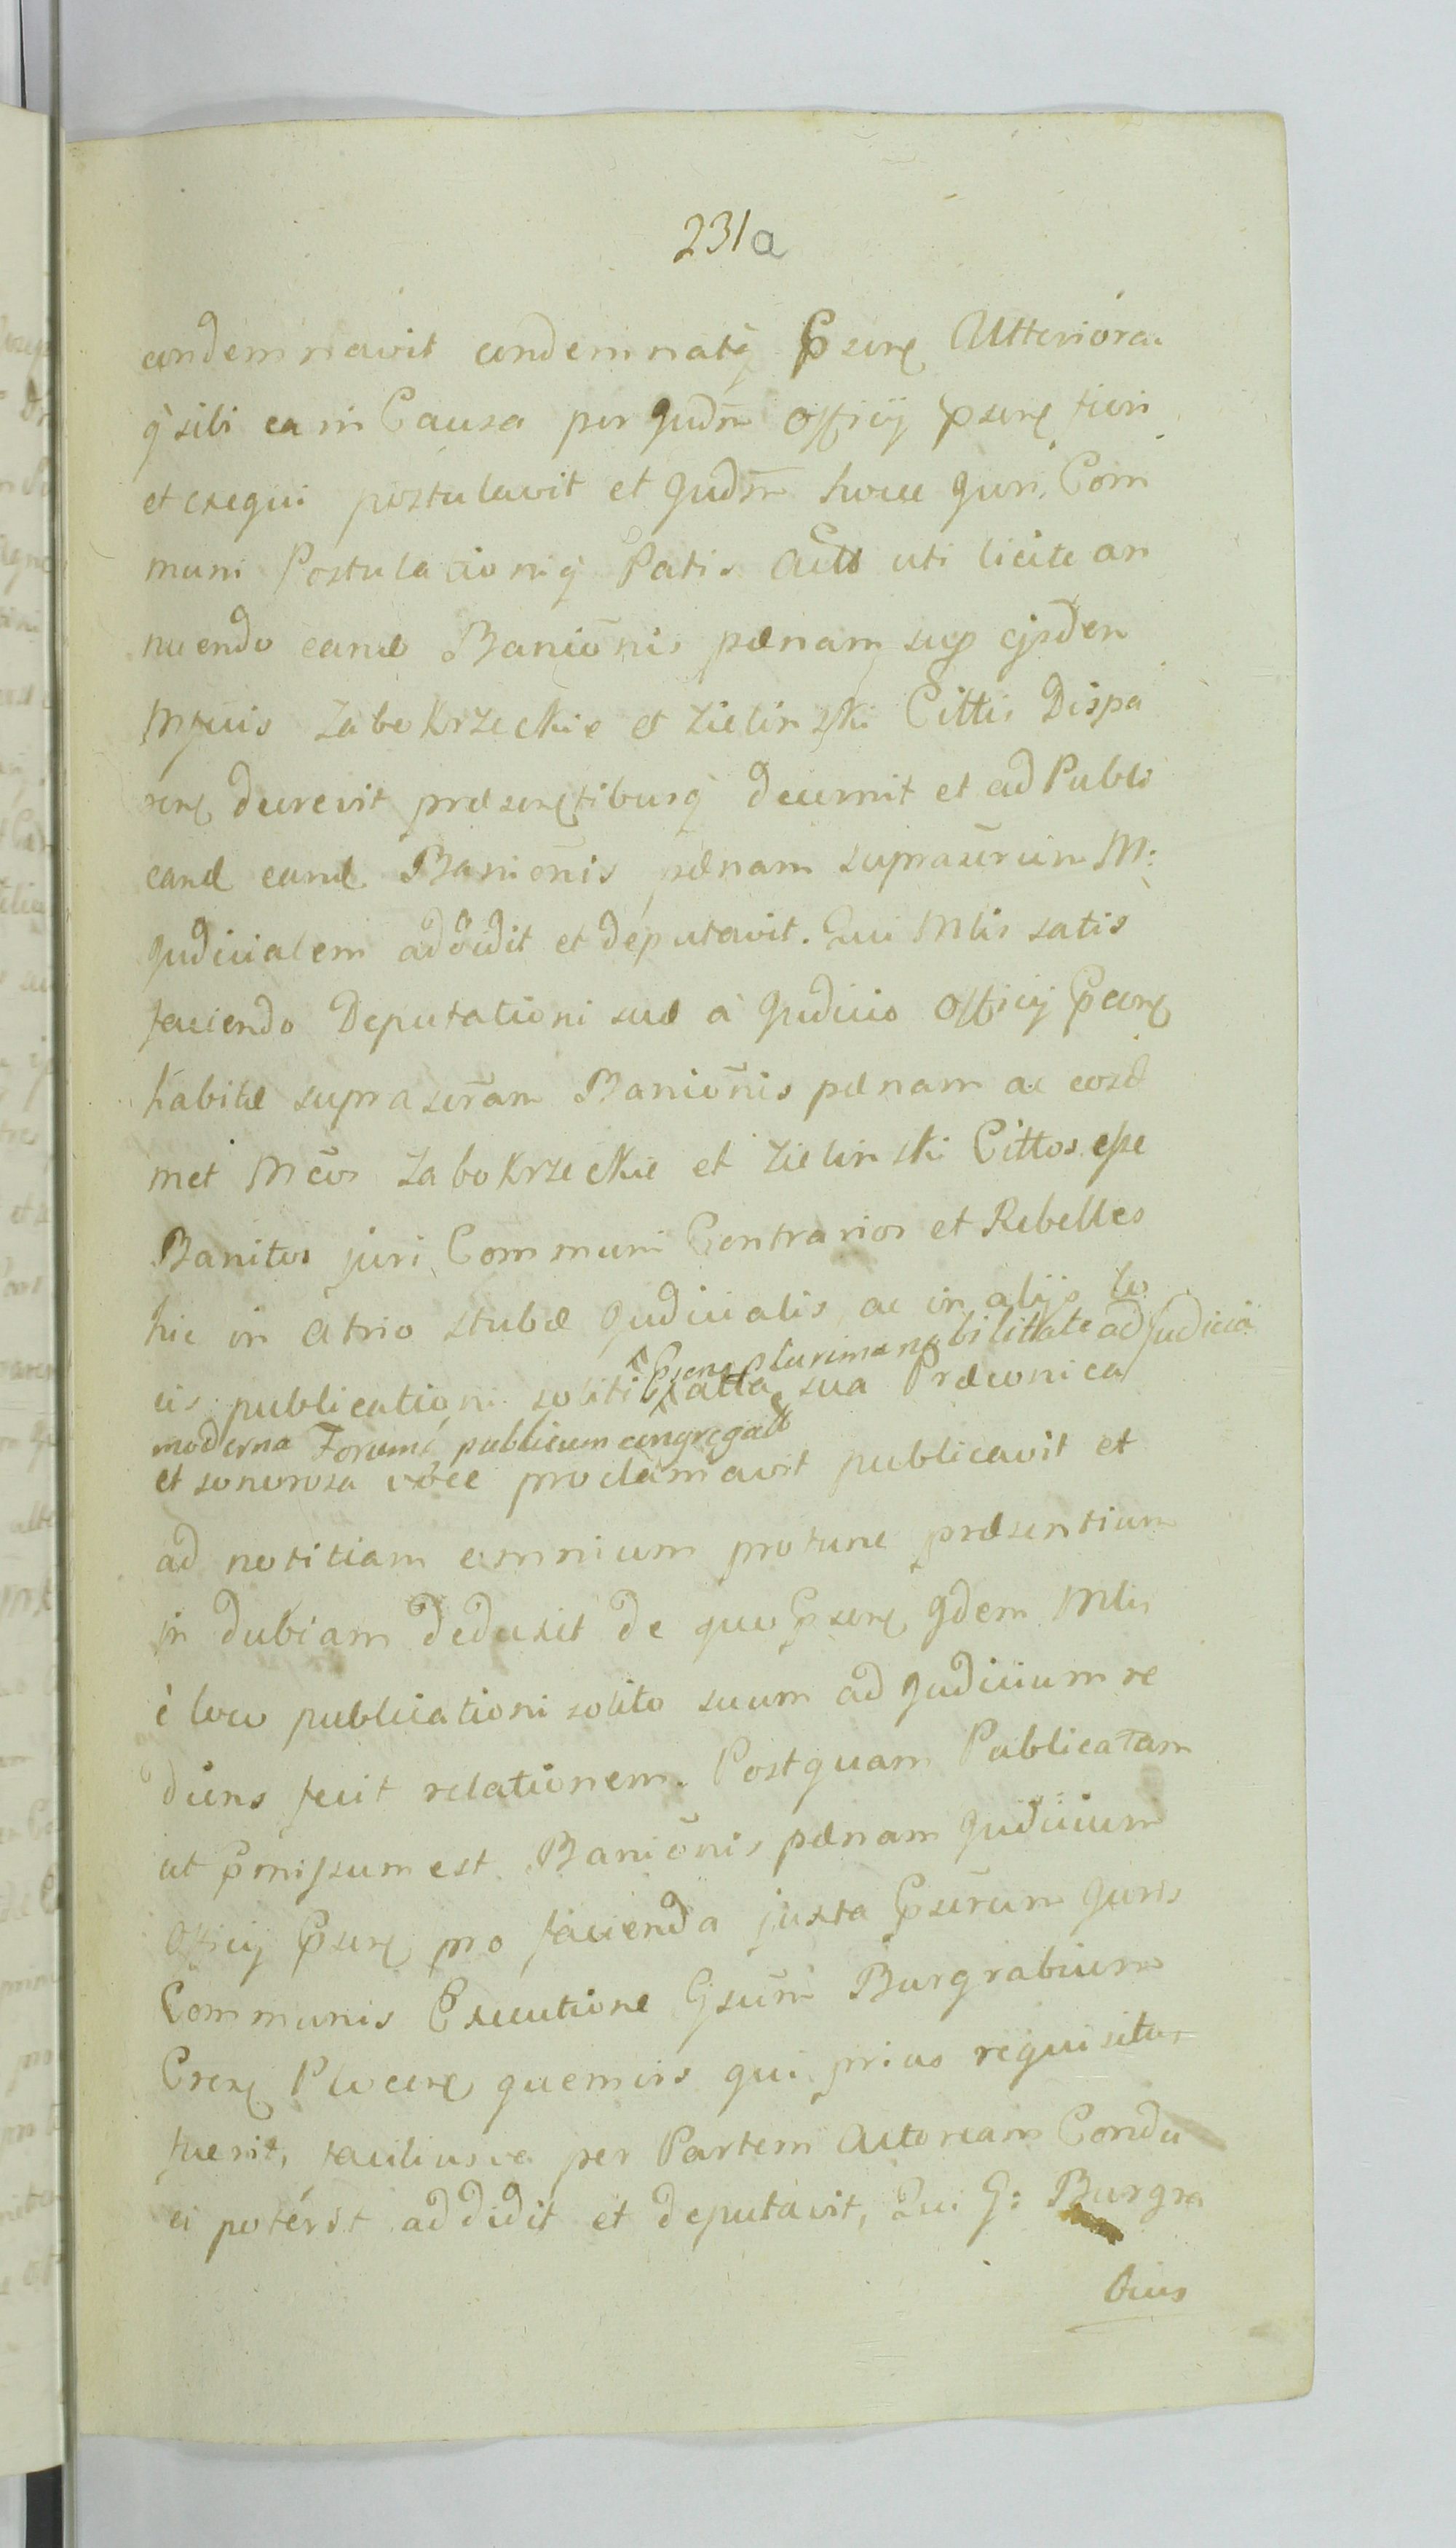 231a
condemnavit condemnatq̀ Psens Ulteriora
q̀ sibi ea in Causa per Judm̄ Officij psens fieri
et exequi postulavit et Judm̄ hocce Juri Com
muni Postulationiq̀ Patis Act uti licite an
nuendo eand Baniōnis pænam sup ijsdem
Mfcis Zabokrzeckie et Zielinski Cittis Dispo
nens decrevit præsentibusq̀ decernit et ad Publi
cand eand Baniōnis pænam suprascrūm M:
Judicialem addidit et deputavit. Qui Mlis satis
faciendo Deputationi suæ à Judicio Officij Psens
habitæ suprascr̄am Baniōnis pænam ac eosd
met Mcos Zabokrzeckie et Zielinski Cittos esse
Banitos juri Communi Contrarios et Rebelles
hic in Atrio stubæ Judicialis ac in alijs lo
Psens plurima nobilitate ad Judicia
cis publicationi soliti alta sua Præconica
moderna Forumq̀ publicum congregatt
et sonorosa voce proclamavit publicavit et
ad notitiam omnium protunc præsentium
in dubiam deduxit de quo Psens Idem Mlis
è loco publicationi solito suum ad Judicium re
diens fecit relationem. Postquam Publicatam
ut Pmissum est Baniōnis pænam Judicium
Officij Psens pro facienda juxta Pscrūm Juris
Communis Executione Gsum Burgrabium
Crens Plocens quemvis qui prius requisitus
fuerit, faciliusve per Partem Actoream Condu
ci poterit addidit et deputavit, Qui G: Burgra
bius